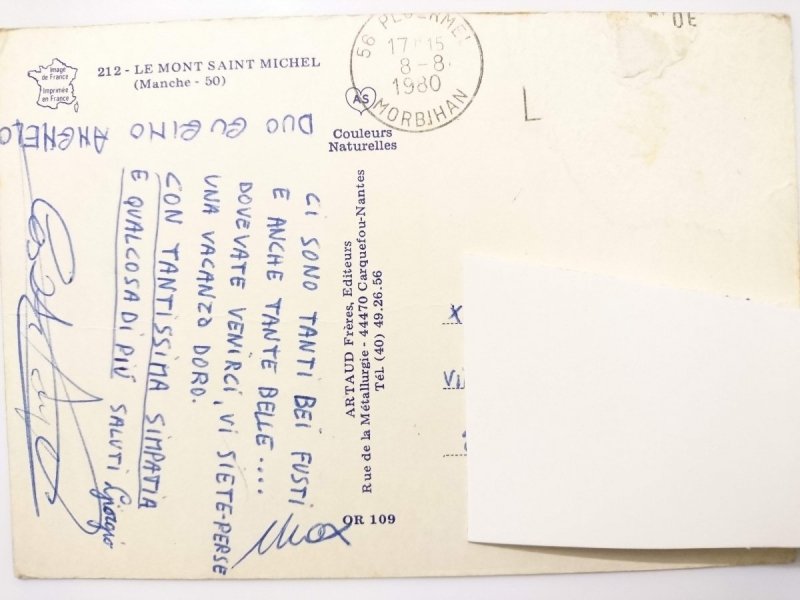 Image
de France
Imprimée
en France
212 - LE MONT SAINT MICHEL
(Manche - 50)
56 PLOERMEL
17 H 15
8-8.
1980
MORBIHAN
L
DE
AS
Couleurs
Naturelles
CI SONO TANTI BEI FUSTI
E ANCHE TANTE BELLE....
DOVEVATE VENIRCI, VI SIETE PERSE
UNA VACANZA DORO.
CON TANTISSIMA SIMPATIA
E QUALCOSA DI PIÚ SALUTI Giorgio
Max
DUO
ARTAUD Frères, Editeurs
Rue de la Métallurgie - 44470 Carquefou-Nantes
Tél (40) 49.26.56
QR 109
X
Vi